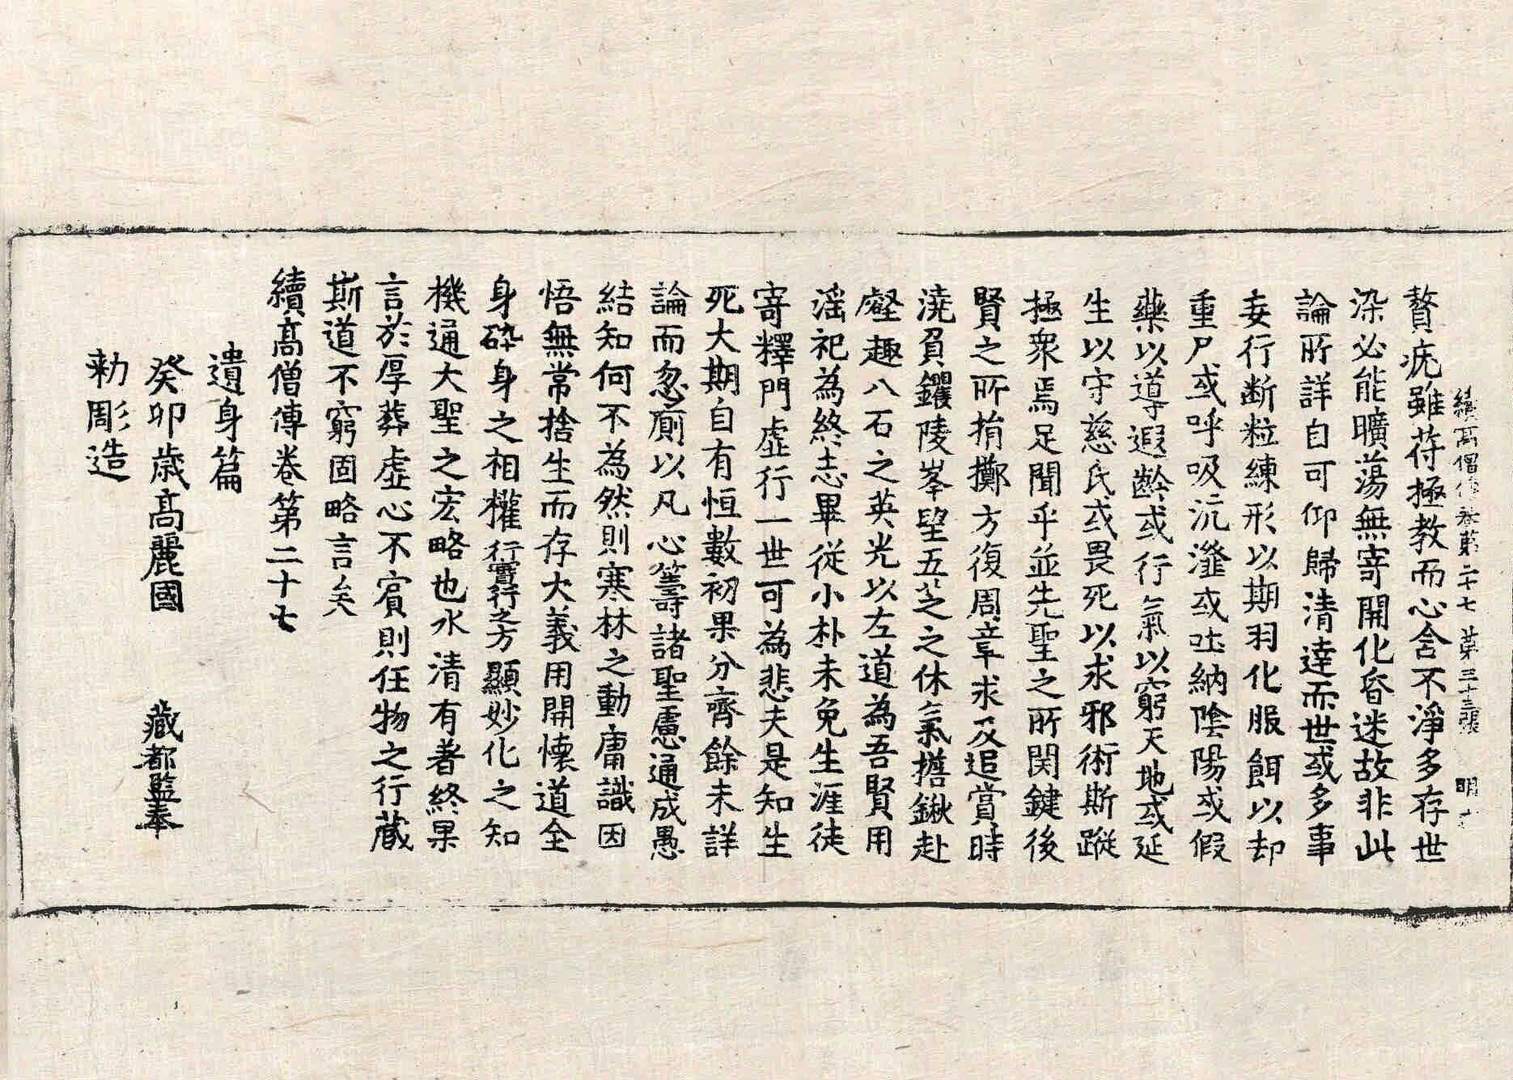 續高僧傳卷第二十七 第三十三張 明
贅疣雖符極教而心含不淨多存世
染必能曠蕩無寄開化昏迷故非此
論所詳自可仰歸清達而世或多事
妄行断粒練形以期羽化服餌以却
重尸或呼吸沆瀣或吐納陰陽或假
藥以導遐齡或行氣以窮天地或延
生以守慈氏或畏死以求邪術斯蹤
極衆焉足聞乎並先聖之所関鍵後
賢之所捐擲方復周章求及追賞時
澆負钁陵峯望五芝之休氣擔鍬赴
壑趣八石之英光以左道為吾賢用
淫祀為終志畢從小朴未免生涯徒
寄釋門虛行一世可為悲夫是知生
死大期自有恒數初果分齊餘未詳
論而忽廁以凡心籌諸聖慮通成愚
結知何不為然則寒林之動庸識因
悟無常捨生而存大義用開懷道全
身碎身之相權行實行之方顯妙化之知
機通大聖之宏略也水清有著終果
言於厚葬虛心不賓則任物之行藏
斯道不窮固略言矣
續高僧傳卷第二十七
遺身篇
癸卯歲高麗國 藏都監奉
勅彫造